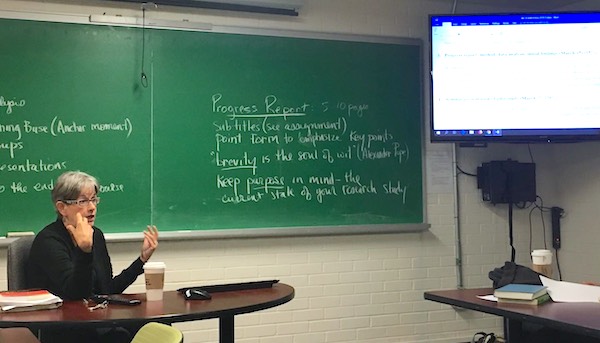 ning Base (Anchor moment)
ups
esentations
o the end
Progress Report: 5-10 pages
Subtitles (see assignment)
point form to emphasize Key points
"brevity is the soul of wit" (Alexander Pope)
Keep purpose in mind - the
current state of your research study